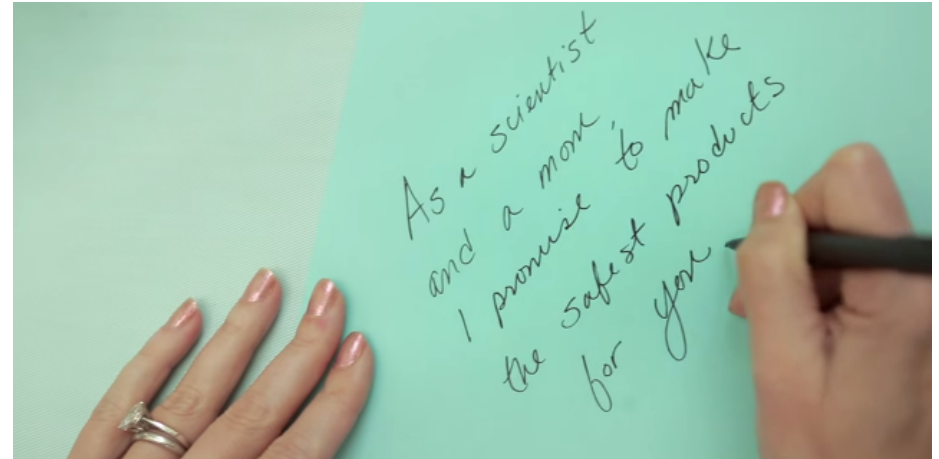 As a scientist
and a mom,
I promise to make
the safest products
for you